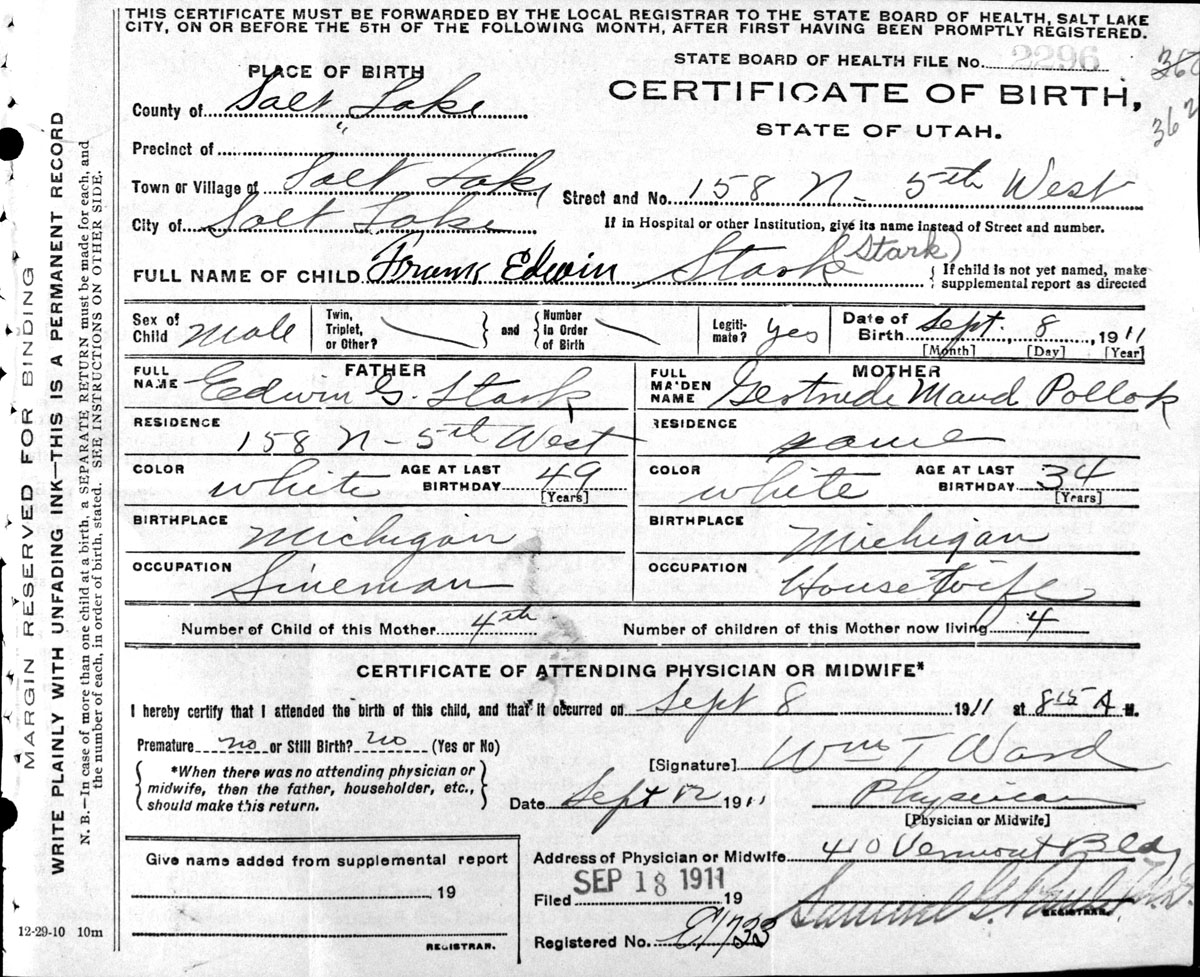 THIS CERTIFICATE MUST BE FORWARDED BY THE LOCAL REGISTRAR TO THE STATE BOARD OF HEALTH, SALT LAKE
CITY, ON OR BEFORE THE 5TH OF THE FOLLOWING MONTH, AFTER FIRST HAVING BEEN PROMPTLY REGISTERED.
STATE BOARD OF HEALTH FILE No. 2296
362
PLACE OF BIRTH
CERTIFICATE OF BIRTH,
STATE OF UTAH.
County of Salt Lake
Precinct of "
Town or Village of Salt Lake
Street and No. 158 N - 5th West
City of Salt Lake
If in Hospital or other Institution, give its name instead of Street and number.
FULL NAME OF CHILD Frank Edwin Stark (Stark)
{ If child is not yet named, make
supplemental report as directed
Sex of Child Male
Twin, Triplet, or Other? } and { Number In Order of Birth
Legiti-mate? yes
Date of Birth Sept. 8, 1911
[Month] [Day] [Year]
FATHER
FULL NAME Edwin G. Stark
RESIDENCE 158 N - 5th West
COLOR white AGE AT LAST BIRTHDAY 49 [Years]
BIRTHPLACE Michigan
OCCUPATION Lineman
MOTHER
FULL MAIDEN NAME Gertrude Maud Pollok
RESIDENCE same
COLOR white AGE AT LAST BIRTHDAY 34 [Years]
BIRTHPLACE Michigan
OCCUPATION House Wife
Number of Child of this Mother 4th Number of children of this Mother now living 4
CERTIFICATE OF ATTENDING PHYSICIAN OR MIDWIFE*
I hereby certify that I attended the birth of this child, and that it occurred on Sept 8 1911 at 8 15 A M.
Premature no or Still Birth? no (Yes or No)
[Signature] Wm T Ward
{ *When there was no attending physician or
midwife, then the father, householder, etc.,
should make this return. }
Date Sept 12 1911 Physician
[Physician or Midwife]
Give name added from supplemental report
, 19
REGISTRAR.
Address of Physician or Midwife 410 Vermont Bldg
Filed SEP 18 1911 19
REGISTRAR.
Registered No. E1733
12-29-10 10m
MARGIN RESERVED FOR BINDING
WRITE PLAINLY WITH UNFADING INK—THIS IS A PERMANENT RECORD
N. B.—In case of more than one child at a birth, a SEPARATE RETURN must be made for each, and
the number of each, in order of birth, stated. SEE INSTRUCTIONS ON OTHER SIDE.